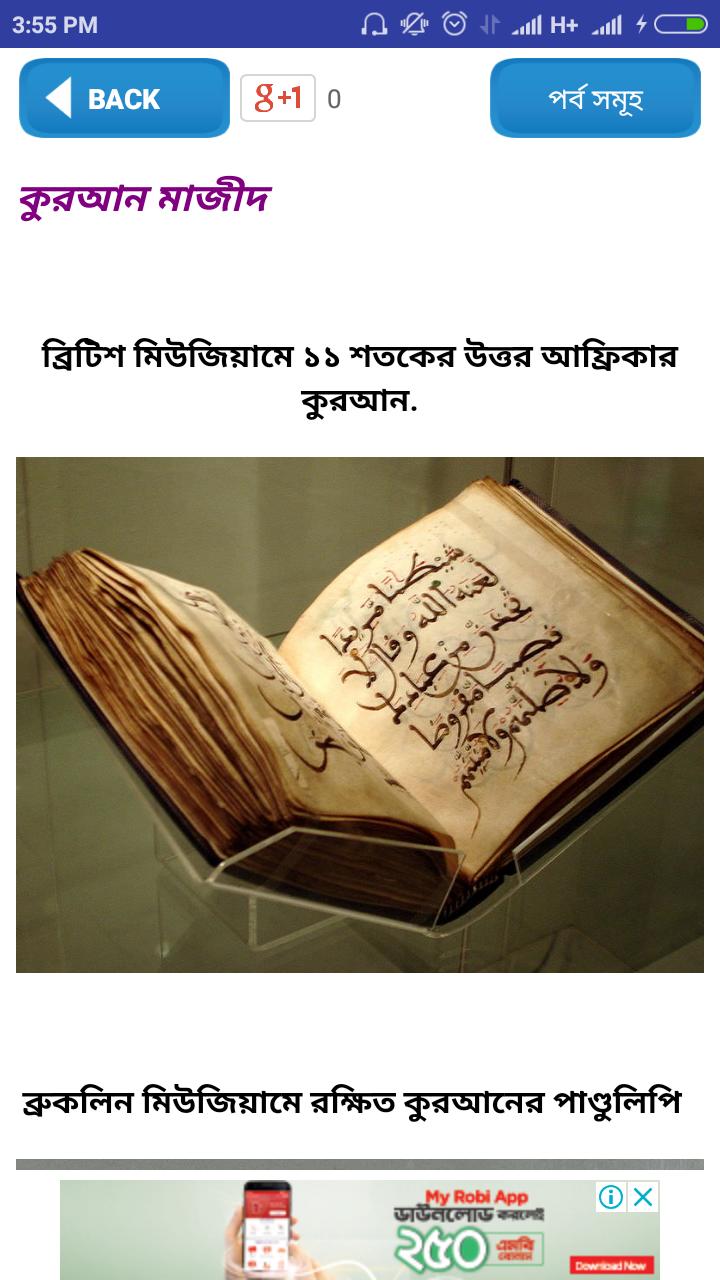 3:55 PM
H+
BACK
g+1
0
পর্ব সমূহ
কুরআন মাজীদ
ব্রিটিশ মিউজিয়ামে ১১ শতকের উত্তর আফ্রিকার
কুরআন.
ব্রুকলিন মিউজিয়ামে রক্ষিত কুরআনের পাণ্ডুলিপি
My Robi App
ডাউনলোড করলেই
২৫০ এমবি
বোনাস
Download Now